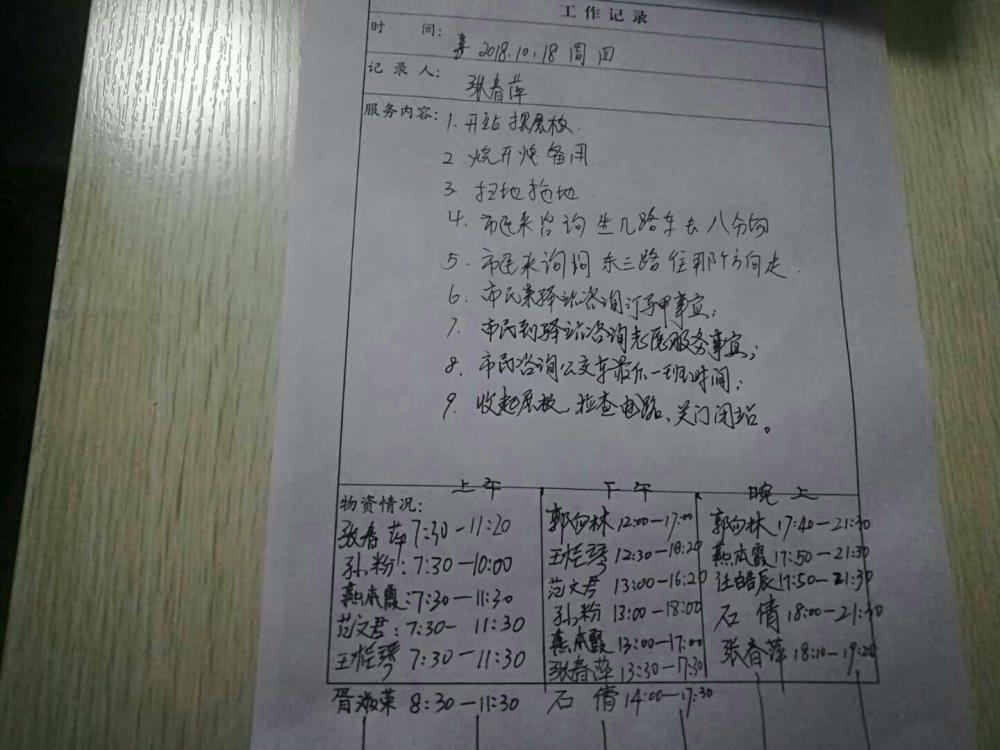 工作记录
时 间: 2018.10.18 周四
记录人: 张春萍
服务内容: 1. 开站摆展板.
2 烧开烧备用
3. 扫地拖地.
4. 市民来咨询坐几路车去八分向
5. 市民来询问东三路住那个方向走.
6. 市民来驿站咨询订马甲事宜;
7. 市民到驿站咨询志愿服务事宜;
8. 市民咨询公交车最后一班时间;
9. 收起展板、检查电路、关门闭站。
物资情况: 上午 下午 晚上
张春萍 7:30—11:20 郭向林 12:00—17:00 郭向林 17:40—21:30
孙粉: 7:30—10:00 王桂琴 12:30—18:20 燕本霞 17:50—21:30
燕本霞: 7:30—11:30 范文君 13:00—16:20 任皓辰 17:50—21:30
范文君: 7:30— 11:30 孙粉 13:00—18:00 石倩 18:00—21:30
王桂琴 7:30—11:30 燕本霞 13:00—17:00 张春萍 18:10—19:20
张春萍 13:30—17:30
胥淑荣 8:30—11:30 石倩 14:00—17:30